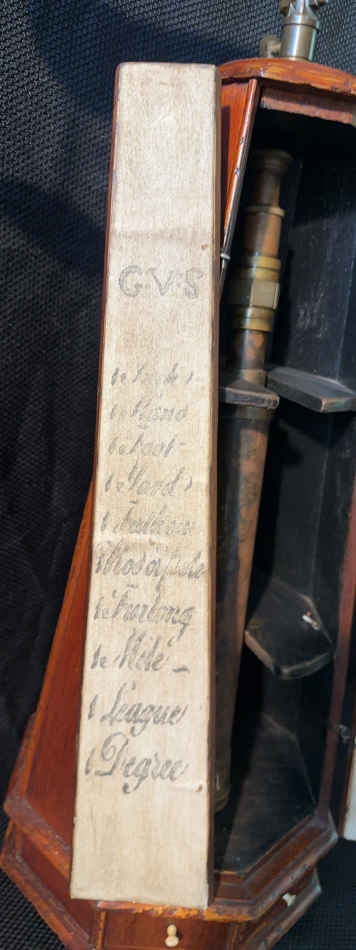 G·V·S
1 Hand
1 Foot
1 Yard
1 Fathom
1 Furlong
1 Mile
1 League
1 Degree